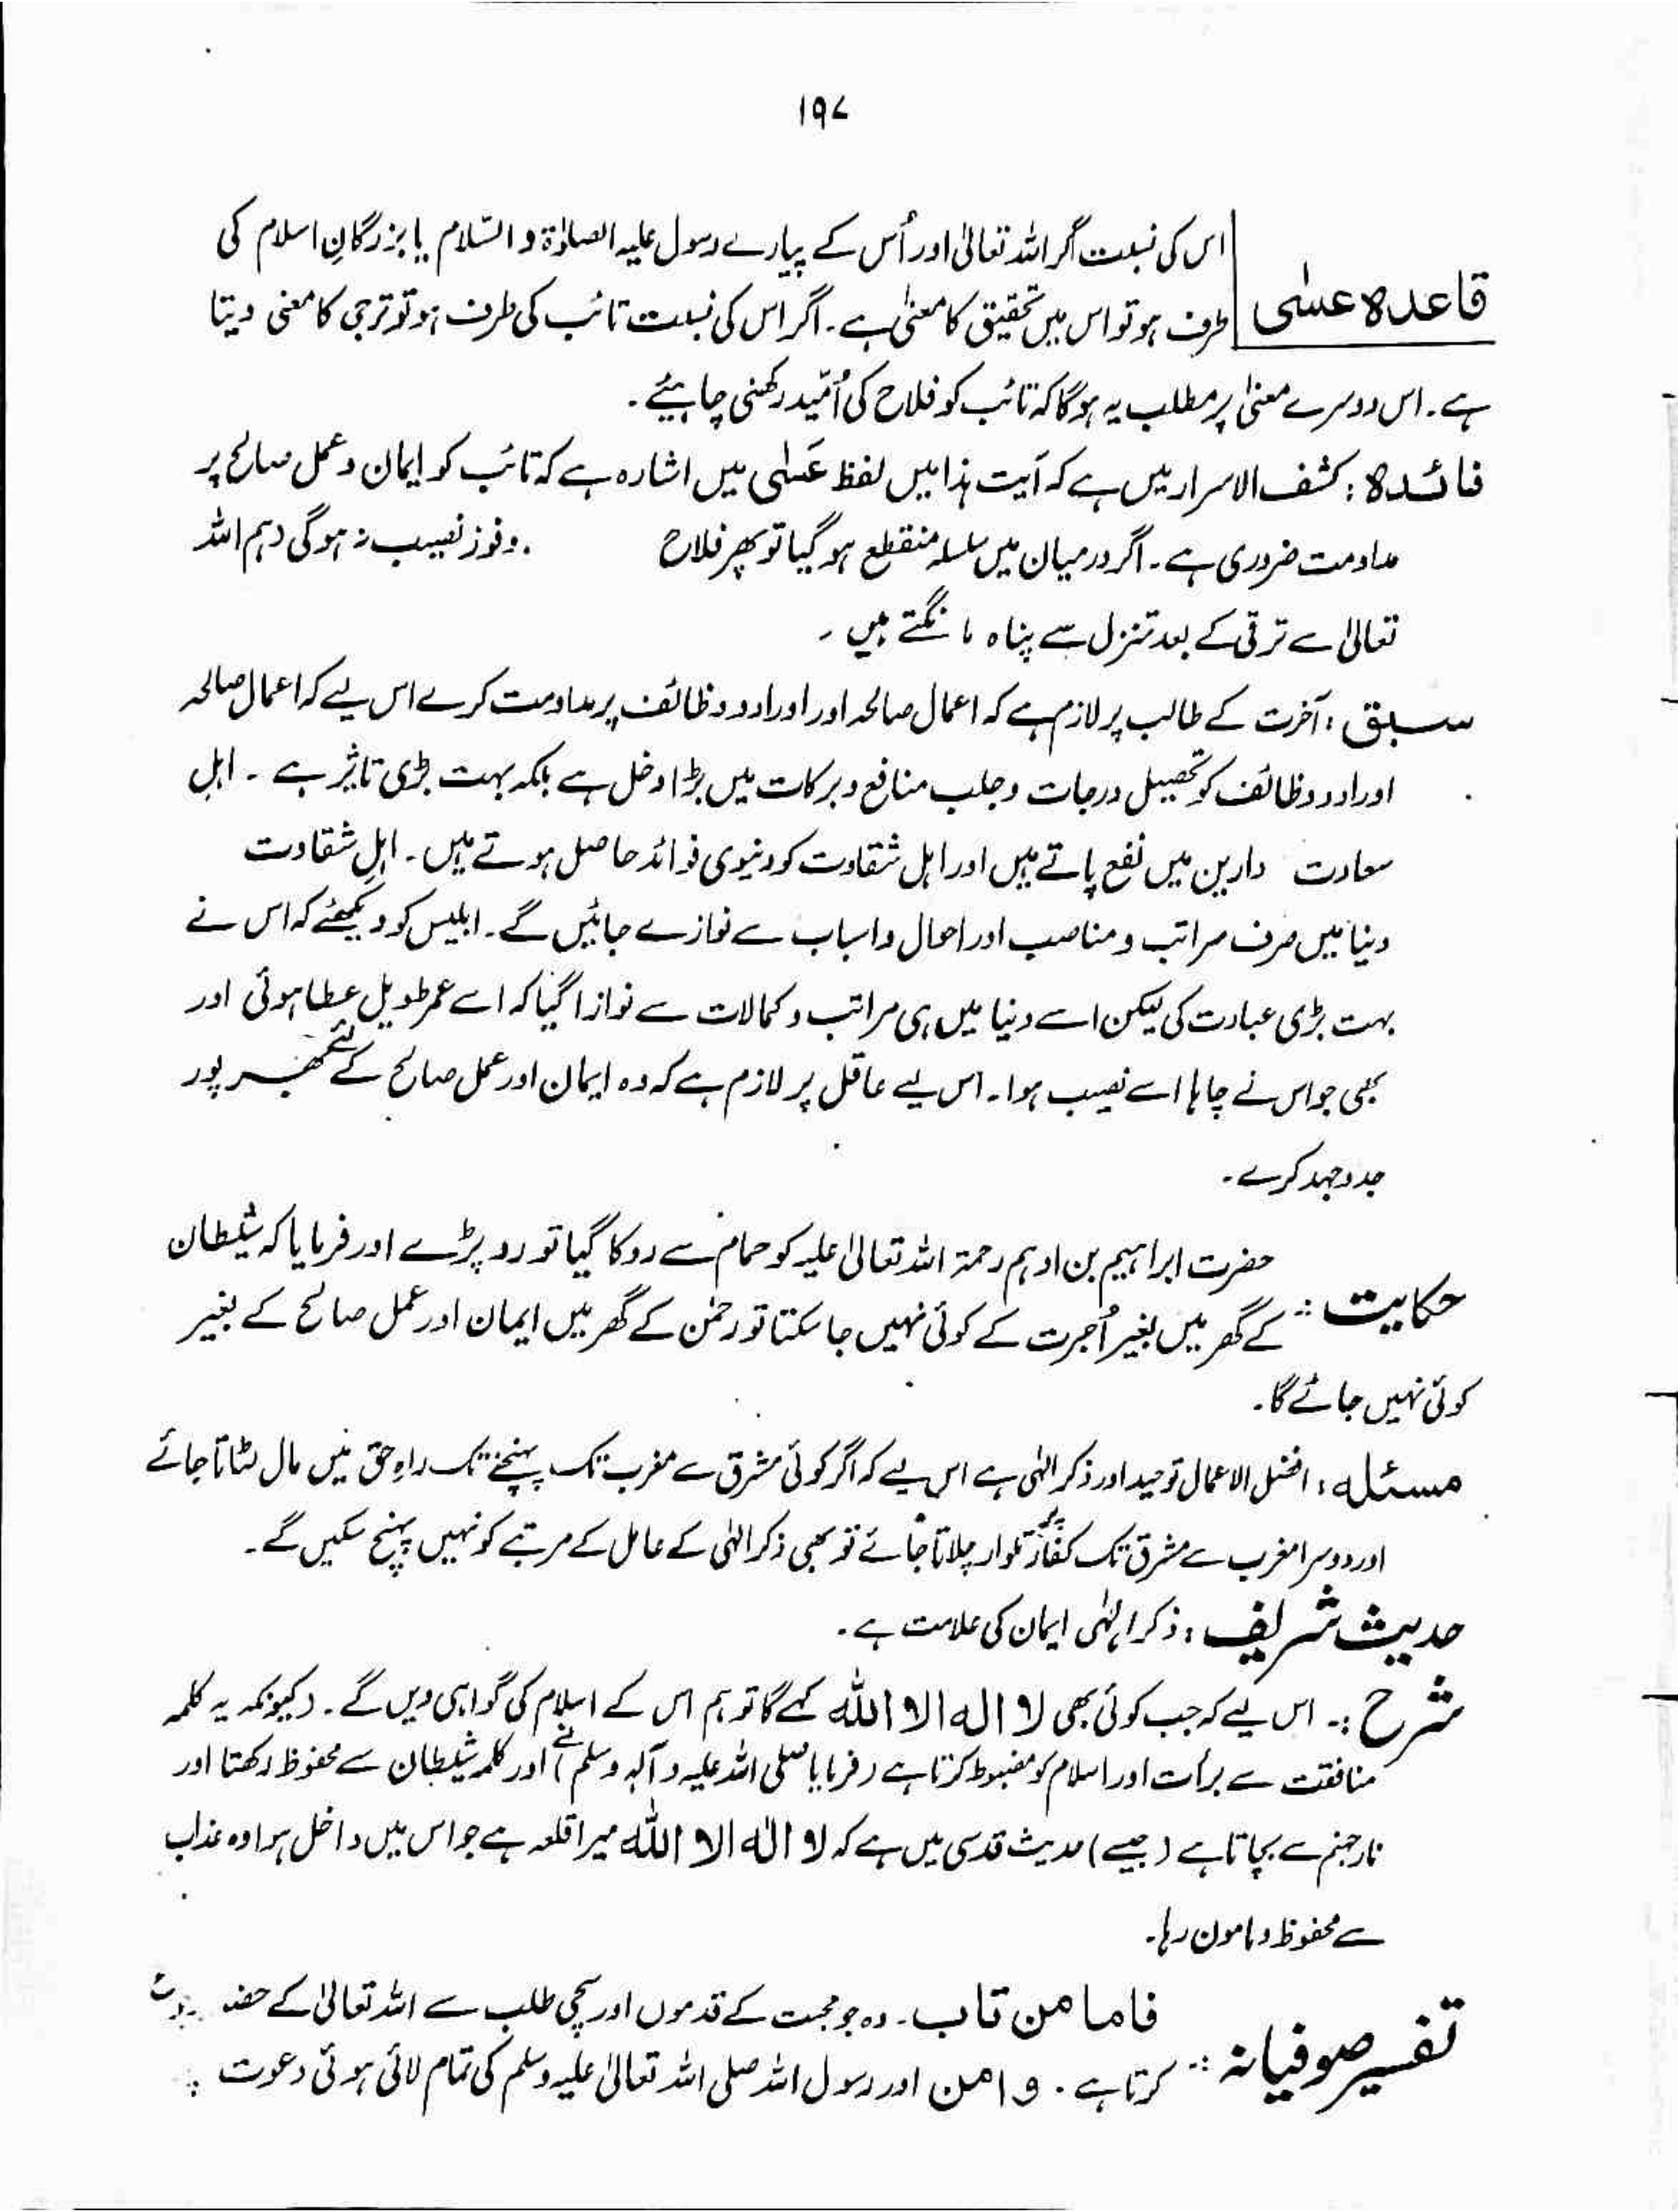 ۱۹۷
اس کی نسبت اگر اللہ تعالیٰ اور اُس کے پیارے رسول علیہ الصلوٰۃ والسّلام یا بزرگانِ اسلام کی
قاعدہ عسٰی
طرف ہو تو اس میں تحقیق کا معنیٰ ہے۔ اگر اس کی نسبت تائب کی طرف ہو تو ترجی کا معنی دیتا
ہے۔ اس دوسرے معنیٰ پر مطلب یہ ہوگا کہ تائب کو فلاح کی اُمّید رکھنی چاہیئے۔
فائدہ : کشف الاسرار میں ہے کہ آیت ہذا میں لفظ عَسٰی میں اشارہ ہے کہ تائب کو ایمان و عمل صالح پر
مداومت ضروری ہے۔ اگر درمیان میں سلسلہ منقطع ہو گیا تو پھر فلاح و فوز نصیب نہ ہوگی (ہم اللہ
تعالیٰ سے ترقی کے بعد تنزل سے پناہ مانگتے ہیں۔
سبق : آخرت کے طالب پر لازم ہے کہ اعمال صالحہ اور اوراد و وظائف پر مداومت کرے اس لیے کہ اعمال صالحہ
اوراد و وظائف کو تحصیل درجات و جلب منافع و برکات میں بڑا دخل ہے بلکہ بہت بڑی تاثیر ہے۔ اہلِ
سعادت دارین میں نفع پاتے ہیں اور اہل شقاوت کو دنیوی فوائد حاصل ہوتے ہیں۔ اہلِ شقاوت
دنیا میں صرف مراتب و مناصب اور احوال و اسباب سے نوازے جائیں گے۔ ابلیس کو دیکھئے کہ اس نے
بہت بڑی عبادت کی لیکن اسے دنیا میں ہی مراتب و کمالات سے نوازا گیا کہ اسے عمر طویل عطا ہوئی اور
بھی جو اس نے چاہا اسے نصیب ہوا۔ اس لیے عاقل پر لازم ہے کہ وہ ایمان اور عمل صالح کے لئے بھر پور
جدوجہد کرے۔
حضرت ابراہیم بن ادہم رحمۃ اللہ تعالیٰ علیہ کو حمام سے روکا گیا تو رو پڑے اور فرمایا کہ شیطان
حکایت :-
کے گھر میں بغیر اُجرت کے کوئی نہیں جا سکتا تو رحمٰن کے گھر میں ایمان اور عمل صالح کے بغیر
کوئی نہیں جائے گا۔
مسئلہ : افضل الاعمال توحید اور ذکر الٰہی ہے اس لیے کہ اگر کوئی مشرق سے مغرب تک پہنچنے تک راہِ حق میں مال لٹاتا جائے
اور دوسرا مغرب سے مشرق تک کفّار پر تلوار چلاتا جائے تو بھی ذکر الٰہی کے عامل کے مرتبے کو نہیں پہنچ سکیں گے۔
حدیث شریف : ذکر الٰہی ایمان کی علامت ہے۔
شرح :- اس لیے کہ جب کوئی بھی لا الہ الا اللہ کہے گا تو ہم اس کے اسلام کی گواہی دیں گے۔ (کیونکہ یہ کلمہ
منافقت سے برأت اور اسلام کو مضبوط کرتا ہے (فرمایا صلی اللہ علیہ و آلہ وسلم نے) اور کلمہ شیطان سے محفوظ رکھتا اور
نار جہنم سے بچاتا ہے (جیسے) حدیث قدسی میں ہے کہ لا الٰہ الا اللہ میرا قلعہ ہے جو اس میں داخل ہوا وہ عذاب
سے محفوظ و مامون رہا۔
فاما من تاب۔ وہ جو محبت کے قدموں اور سچی طلب سے اللہ تعالیٰ کے
تفسیر صوفیانہ :-
کرتا ہے۔ و امن اور رسول اللہ صلی اللہ تعالیٰ علیہ وسلم کی تمام لائی ہوئی دعوت